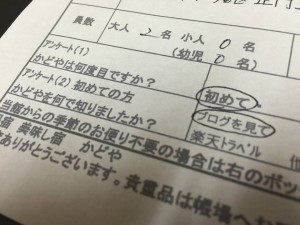 員数 大人 2名 小人 0名
(幼児 0名)
アンケート(1)
かどやは何度目ですか? 初めて
アンケート(2)初めての方
かどやを何で知りましたか? ブログを見て
楽天トラベル
当館からの季節のお便り不要の場合は右のボッ
宿 美味し宿 かどや
ありがとうございます。貴重品は帳場へお